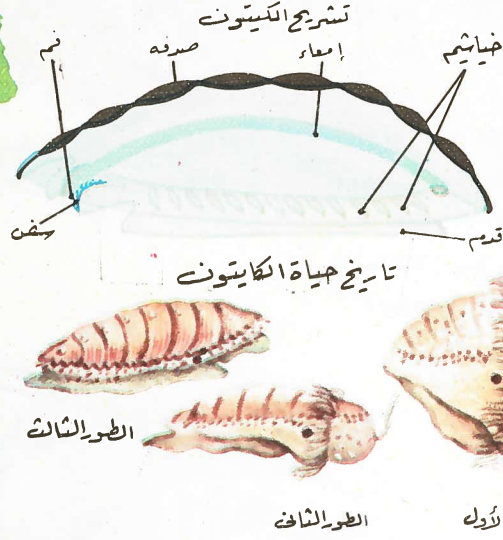 تشريح الكيتون
خياشيم
إمعاء
صدفه
فم
سفن
قدم
تاريخ حياة الكايتون
الطور الثالث
الطور الثاني
لأول